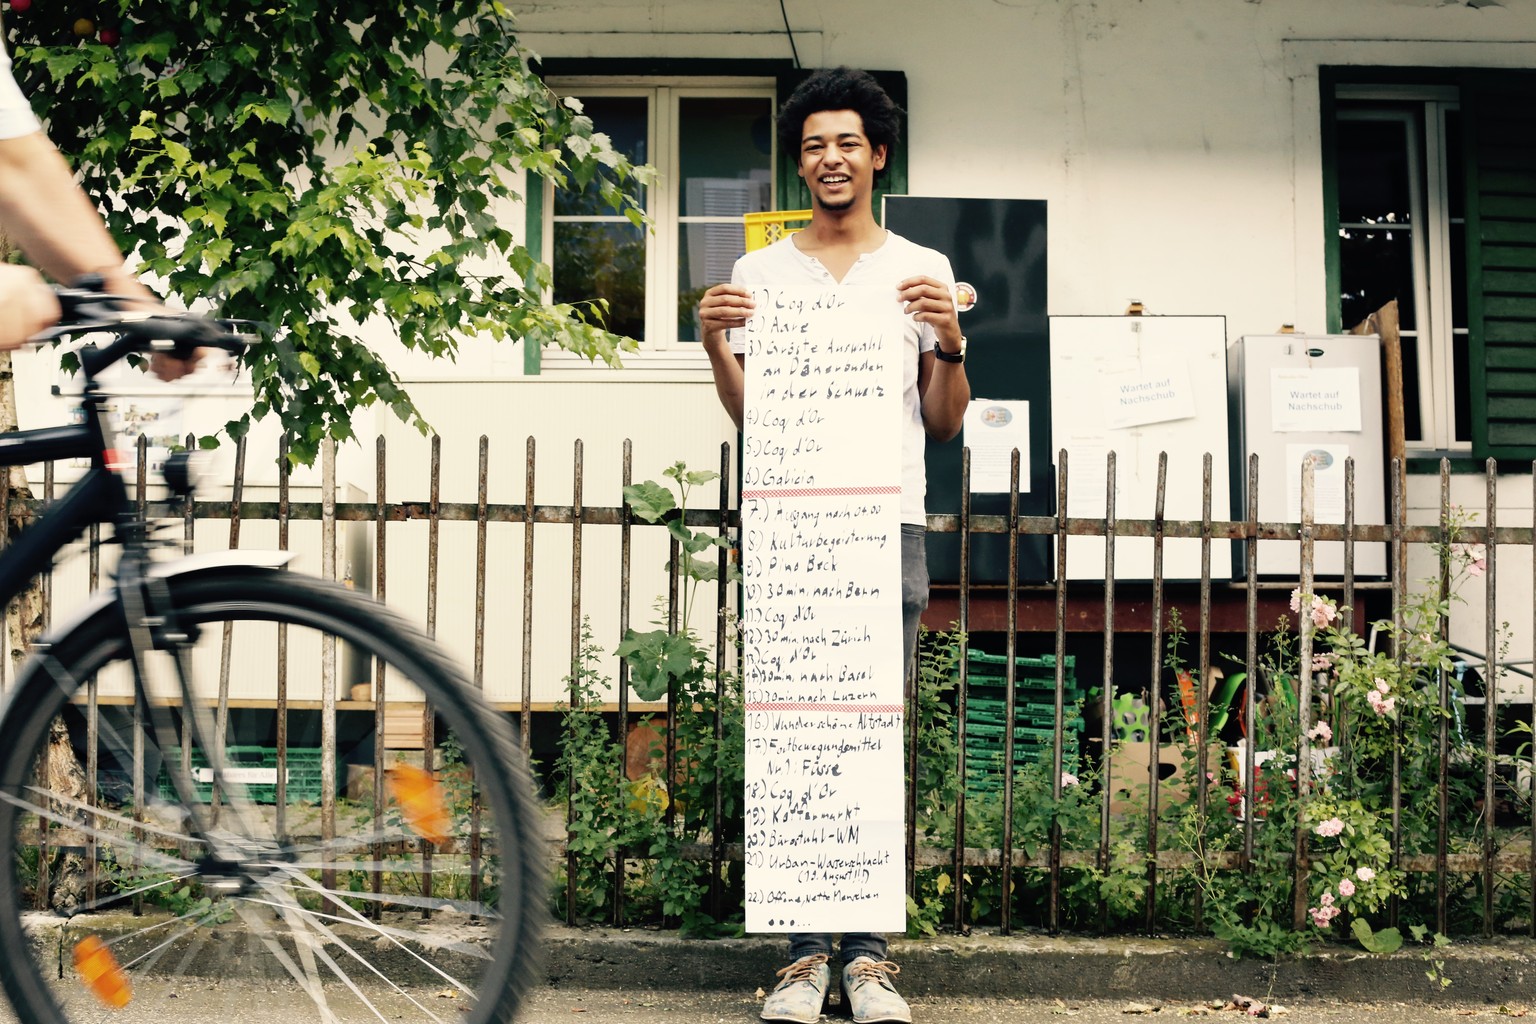 1.) Coq d'Or
2.) Aare
3.) Grösste Auswahl
an Dönerbuden
in der Schweiz
4.) Coq d'Or
5.) Coq d'Or
6.) Galicia
7.) Ausgang nach 04.00
8.) Kulturbegeisterung
9.) Pino Beck
10.) 30 min. nach Bern
11.) Coq d'Or
12.) 30 min. nach Zürich
13.) Coq d'Or
14.) 30 min. nach Basel
15.) 30 min. nach Luzern
16.) Wunderschöne Altstadt
17.) Fortbewegungsmittel
Nr. 1: Füsse
18.) Coq d'Or
19.) Koffermarkt
20.) Bürostuhl-WM
21.) Urban-Wasserschlacht
(19. August!!!)
22.) Offene, nette Menschen
•••...
Wartet auf
Nachschub
Wartet auf
Nachschub